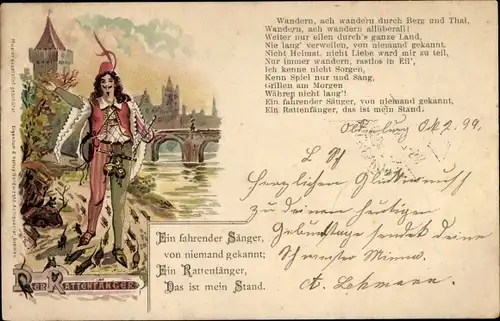 Wandern, ach wandern durch Berg und Thal,
Wandern, ach wandern allüberall!
Weiter nur eilen durch's ganze Land,
Nie lang' verweilen, von niemand gekannt.
Nicht Heimat, nicht Liebe ward mir zu teil,
Nur immer wandern, rastlos in Eil',
Ich kenne nicht Sorgen,
Kenn Spiel nur und Sang,
Grillen am Morgen
Währen nicht lang'!
Ein fahrender Sänger, von niemand gekannt,
Ein Rattenfänger, das ist mein Stand.
Oldenburg Okt. 2. 99.
L. Sch
Herzlichen Glückwunsch
zu deinem heutigen
Geburtstage sendet deine
Schwester Minna
A. Lehmann.
Ein fahrender Sänger,
von niemand gekannt;
Ein Rattenfänger,
Das ist mein Stand.
Der Rattenfänger